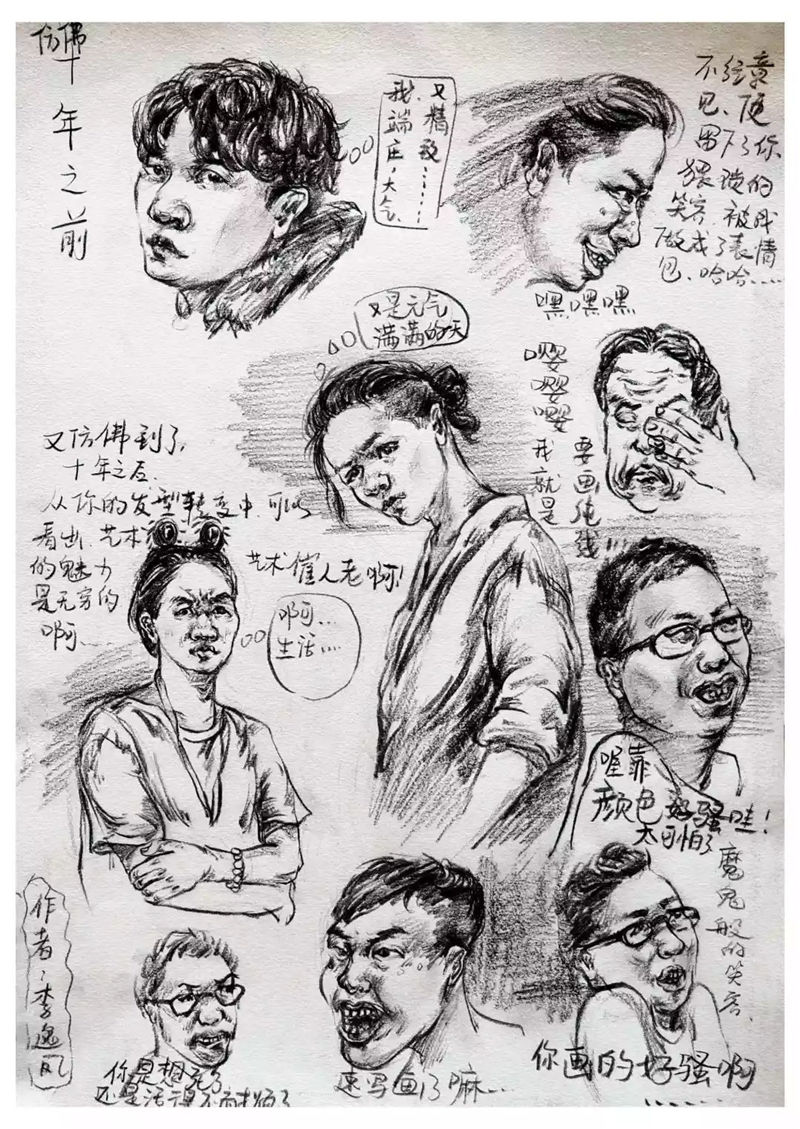 仿佛
十年之前
又精致……
我,端庄,大气
不经意
间,便
留下了你
猥琐的
笑容,被我
做成了表情
包、哈哈……
嘿嘿嘿
又是元气
满满的一天
嘤嘤嘤
我就是
要画纯
线!!
又仿佛到了,
十年之后
从你的发型转变中,可以
看出,艺术
的魅力
是无穷的
啊……
艺术催人老啊!
啊……
生活……
喔靠
颜色好骚哇!
太可怕了
魔鬼般的笑容、
作者:李逸风
你是想死了
还是活得不耐烦了
速写画了嘛…
你画的好骚啊
……